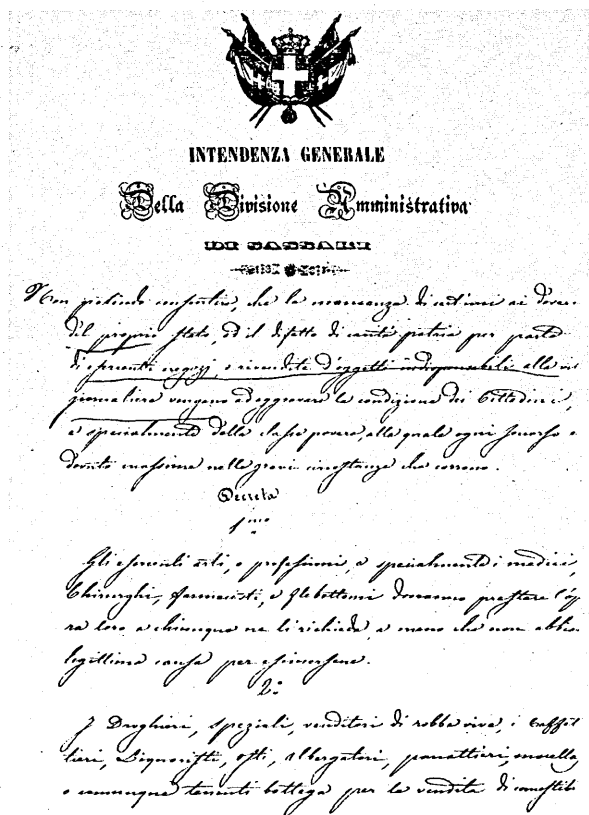 INTENDENZA GENERALE
Della Divisione Amministrativa
DI SASSARI
Non potendo consentire, che la mancanza di ai Doveri
del proprio stato, ed il difetto di carità patria per parte
di esercenti negozj, o rivendite d'oggetti indispensabili alla vi
giornaliera vengano ad aggravare la condizione dei Cittadini,
e specialmente della classe povera, alla quale ogni soccorso è
dovuto massime nelle gravi circostanze che corrono.
Decreta
1mo
Gli esercenti arti, o professioni, e specialmente i medici,
Chirurghi, farmacisti, e flebottomi dovranno prestare l'op
ra loro a chiunque ne li richieda a meno che non abbia
legittima causa per esimersene.
2o
I Droghieri, speziali, venditori di robba viva, i Caffet
tieri, Liquoristi, osti, albergatori, panattieri, macella
o comunque tenenti bottega per la vendita di comestib